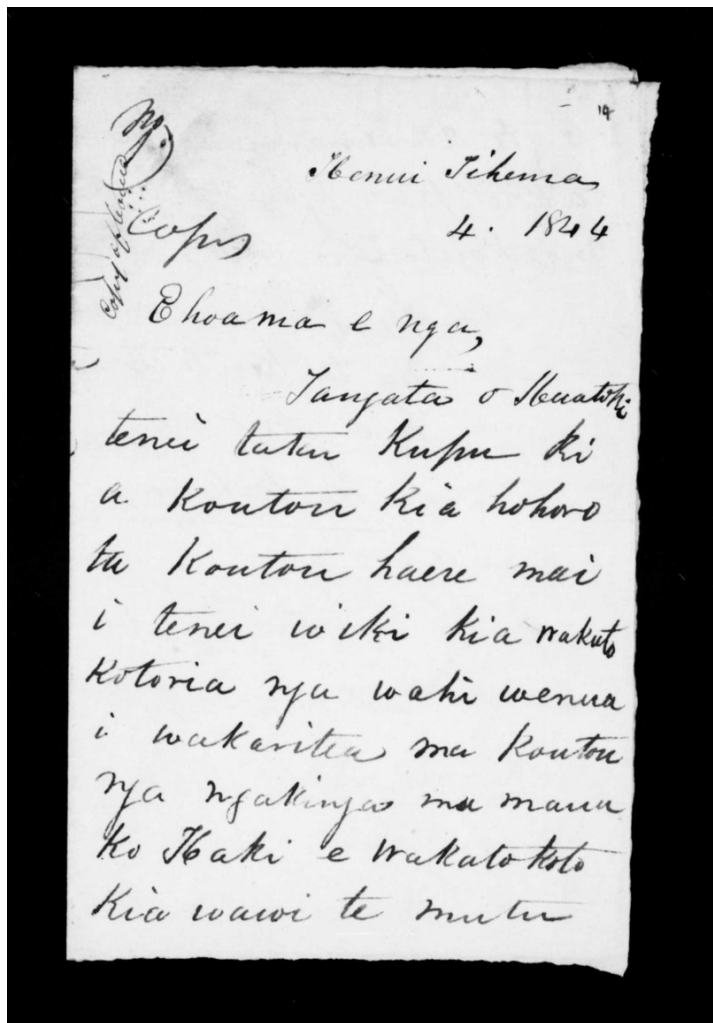 19
Henui Tihema
4. 1844
Copy
Copy of
E hoa ma e nga,
Tangata o Huatoki
tenei taku Kupu ki
a Koutou kia hohoro
ta Koutou haere mai
i tenei wiki kia wakato
kotoria nga wahi wenua
i wakaritea ma Koutou
nga ngakinga ma maua
ko Haki e wakatokoto
Kia wawi te mutu